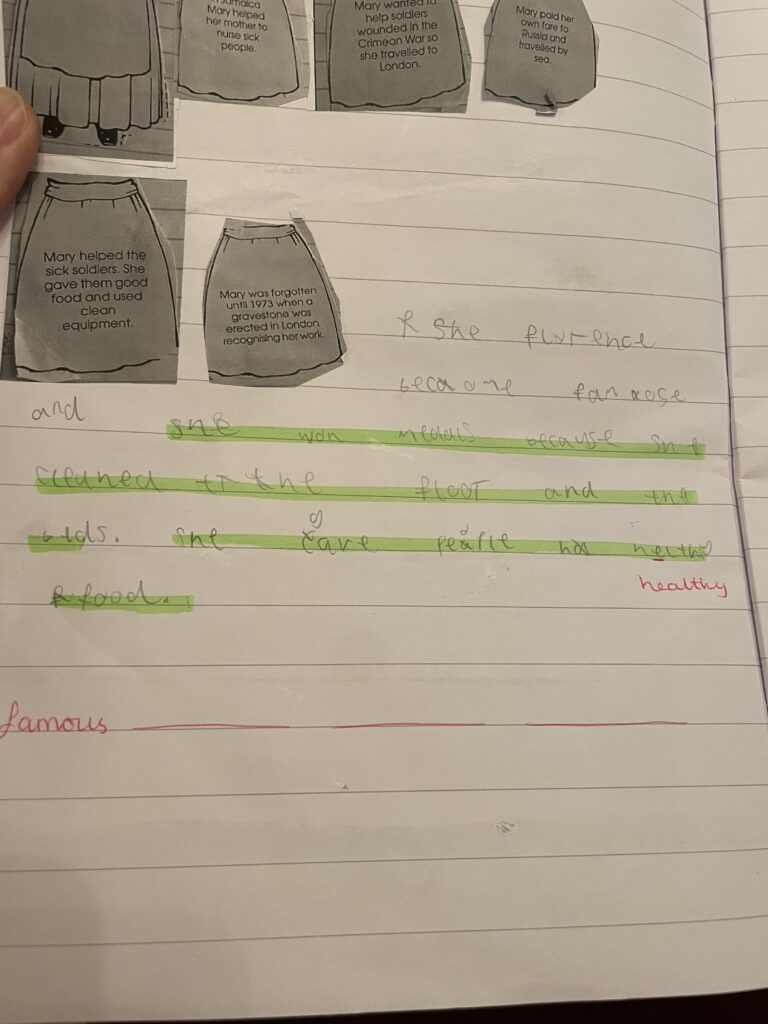 in Jamaica
Mary helped
her mother to
nurse sick
people.
Mary wanted to
help soldiers
wounded in the
Crimean War so
she travelled to
London.
Mary paid her
own fare to
Russia and
travelled by
sea.
Mary helped the
sick soldiers. She
gave them good
food and used
clean
equipment.
Mary was forgotten
until 1973 when a
gravestone was
erected in London
recognising her work.
She florence
became
and she won medals because she
cleaned the floor and the
beds. she gave people
healthy
food.
famous